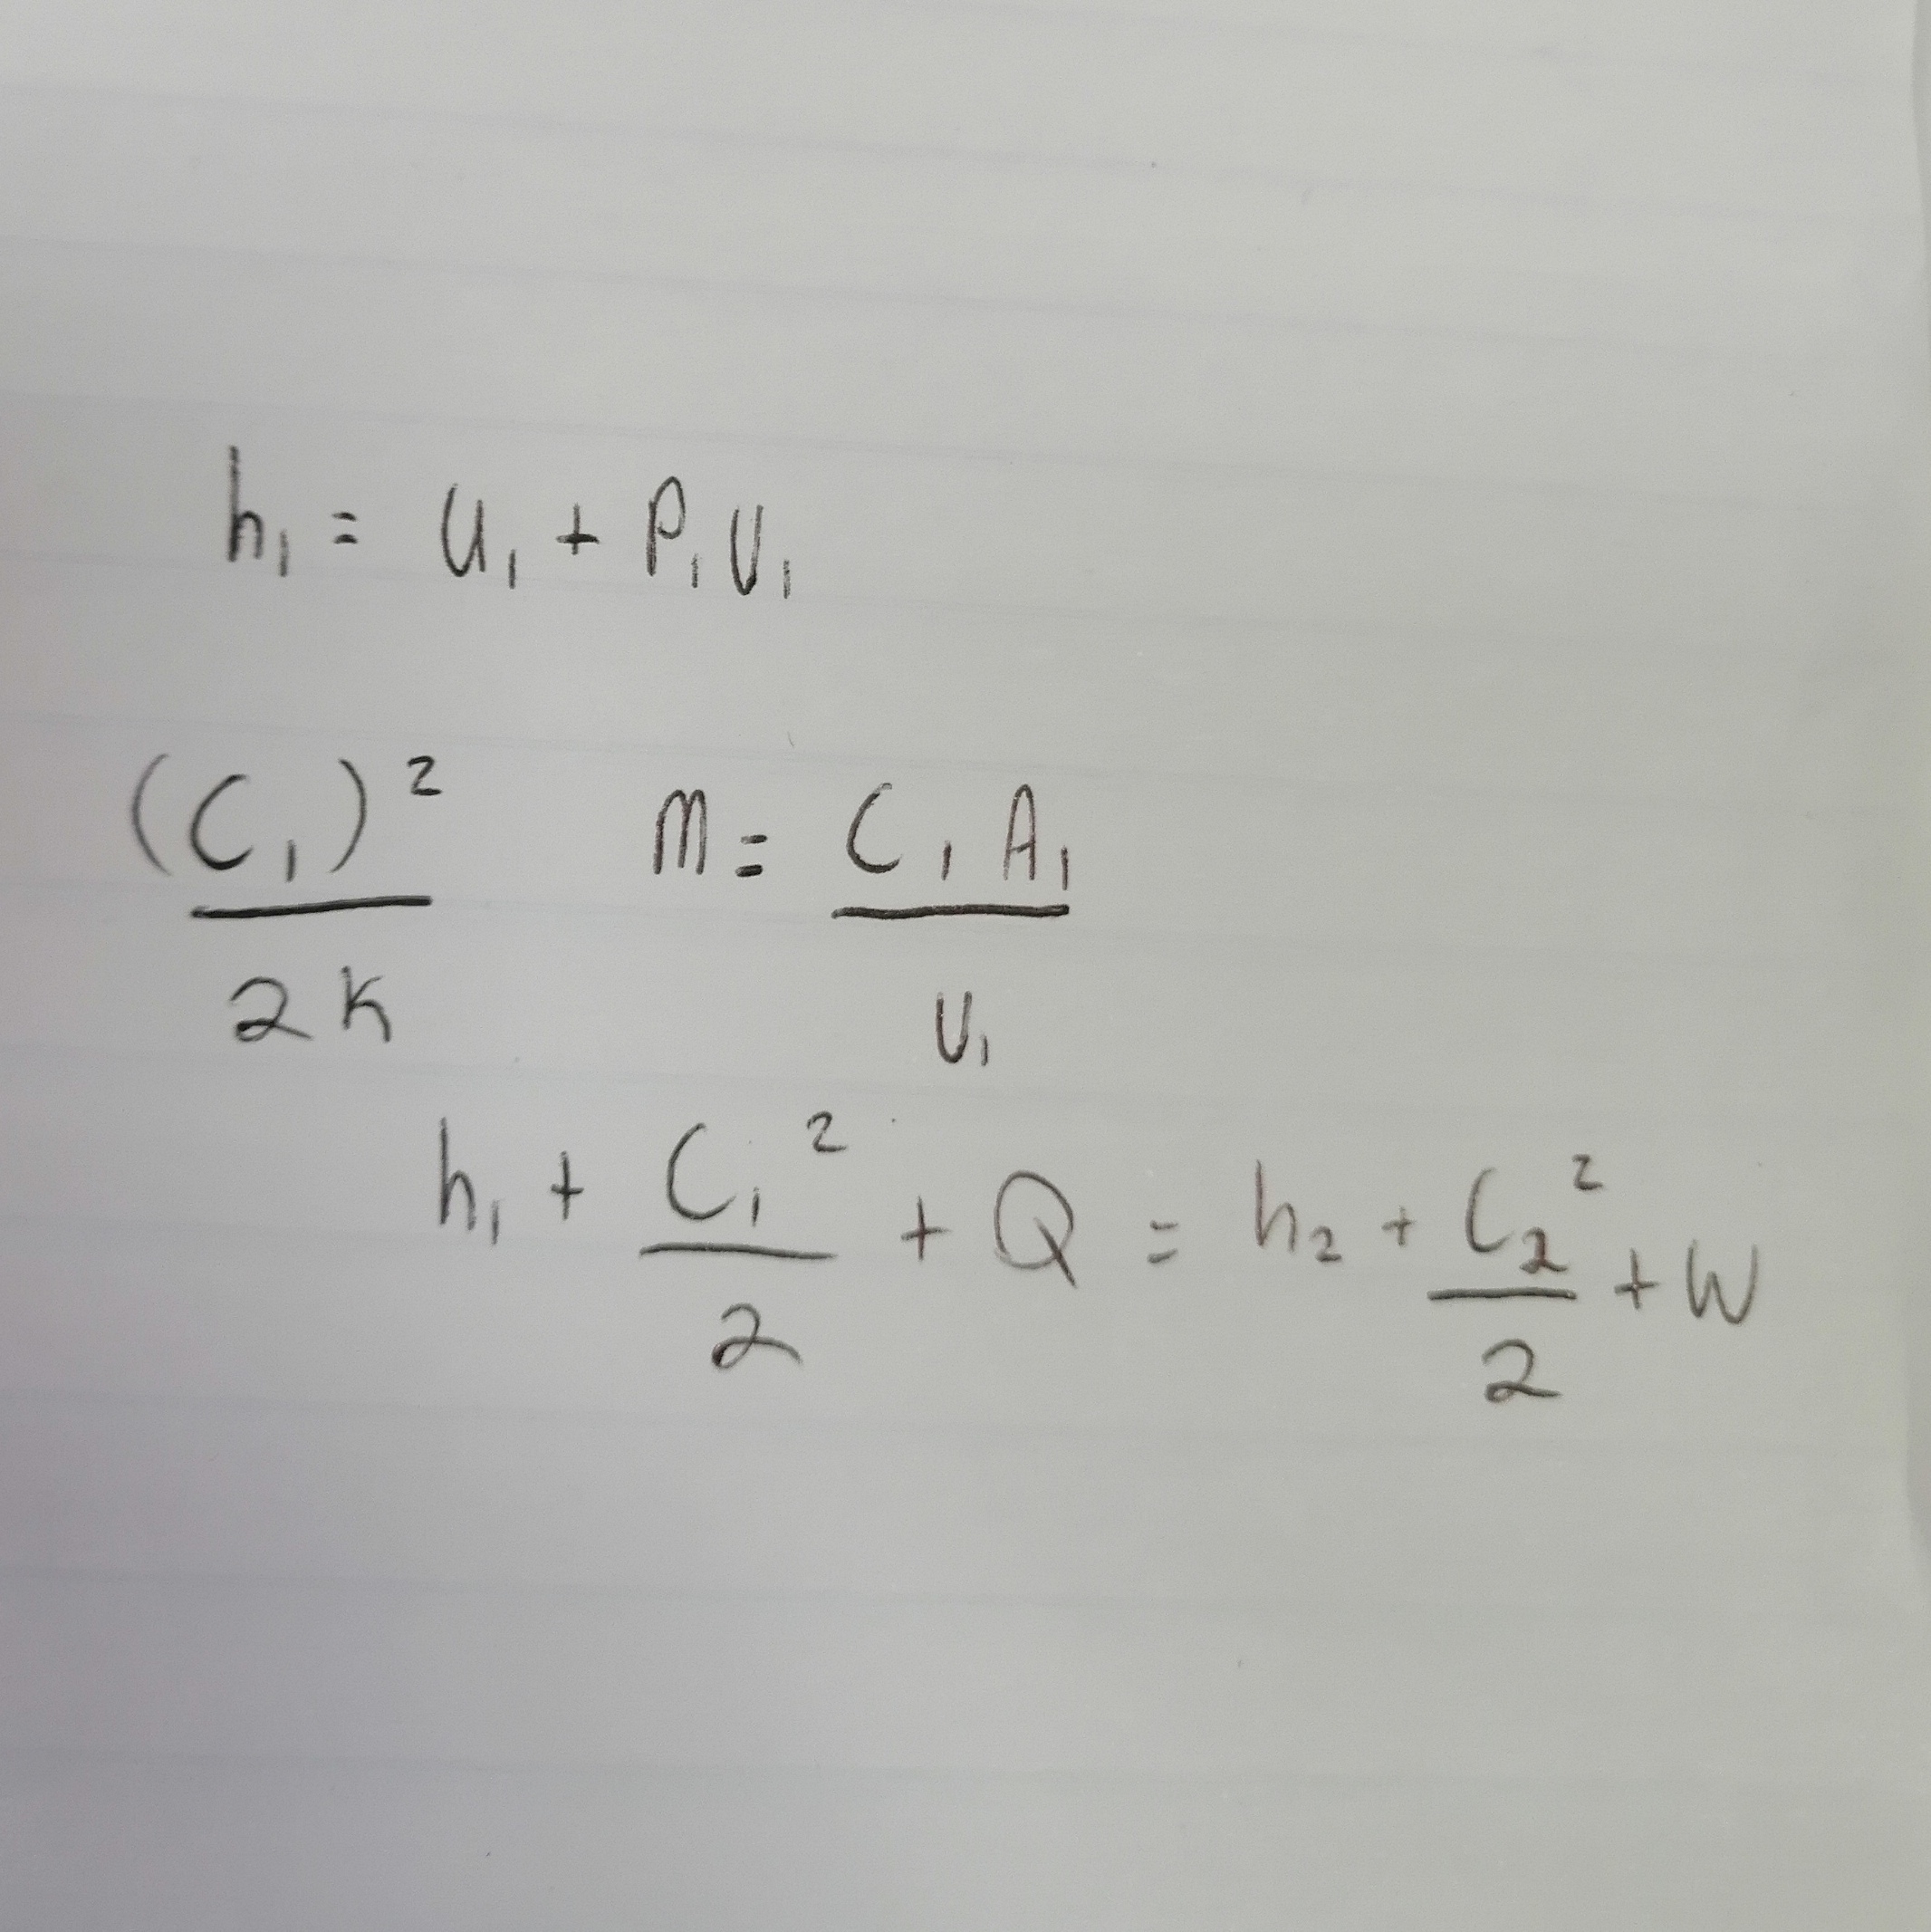 h₁ = u₁ + P₁v₁
(C₁)²/2K    m = C₁A₁/v₁
h₁ + C₁²/2 + Q = h₂ + C₂²/2 + W